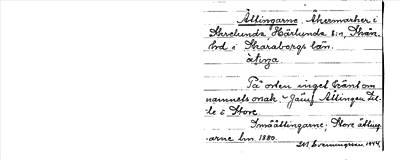 Ättingarne, Åkermarker i
Skrelunda, Härlunda s:n, Skån.
hd i Skaraborgs län.
På orten inget känt om
namnets orsak. - Jämf Ättingen Lil-
le o Store
Småättingarne, Store ätting
arne lm. 1880.
1944.